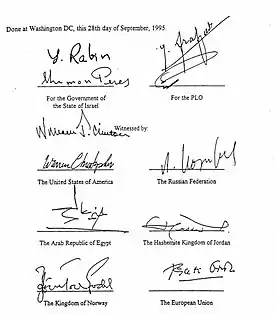 Done at Washington DC, this 28th day of September, 1995.
Y. Rabin
Shimon Peres
For the Government of
the State of Israel
For the PLO
Witnessed by:
William J. Clinton
Warren Christopher
The United States of America
The Russian Federation
The Arab Republic of Egypt
The Hashemite Kingdom of Jordan
The Kingdom of Norway
The European Union